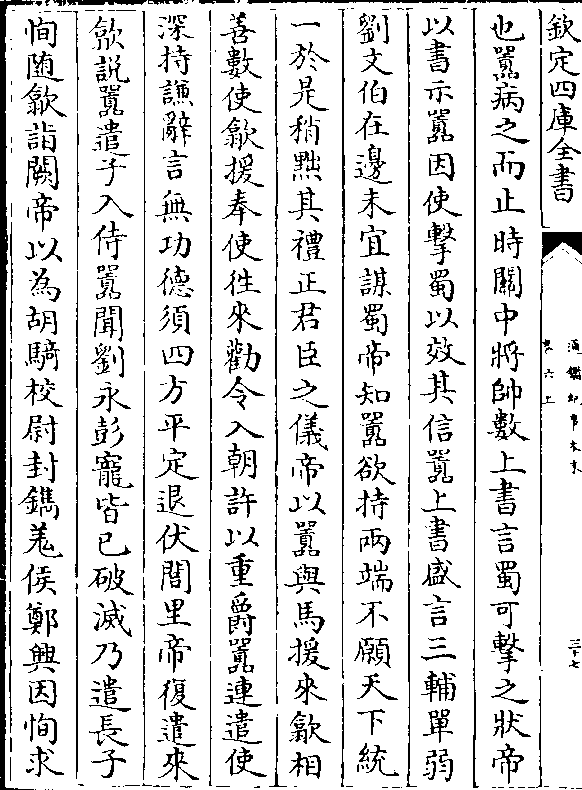 欽定四庫全書
通鑑紀事本末
卷六上
三十七
也囂病之而止時關中將帥數上書言蜀可擊之狀帝
以書示囂因使擊蜀以效其信囂上書盛言三輔單弱
劉文伯在邊未宜謀蜀帝知囂欲持兩端不願天下統
一於是稍黜其禮正君臣之儀帝以囂與馬援來歙相
善數使歙援奉使往來勸令入朝許以重爵囂連遣使
深持謙辭言無功德須四方平定退伏閭里帝復遣來
歙説囂遣子入侍囂聞劉永彭寵皆已破滅乃遣長子
恂随歙詣闕帝以為胡騎校尉封鐫羌侯鄭興因恂求